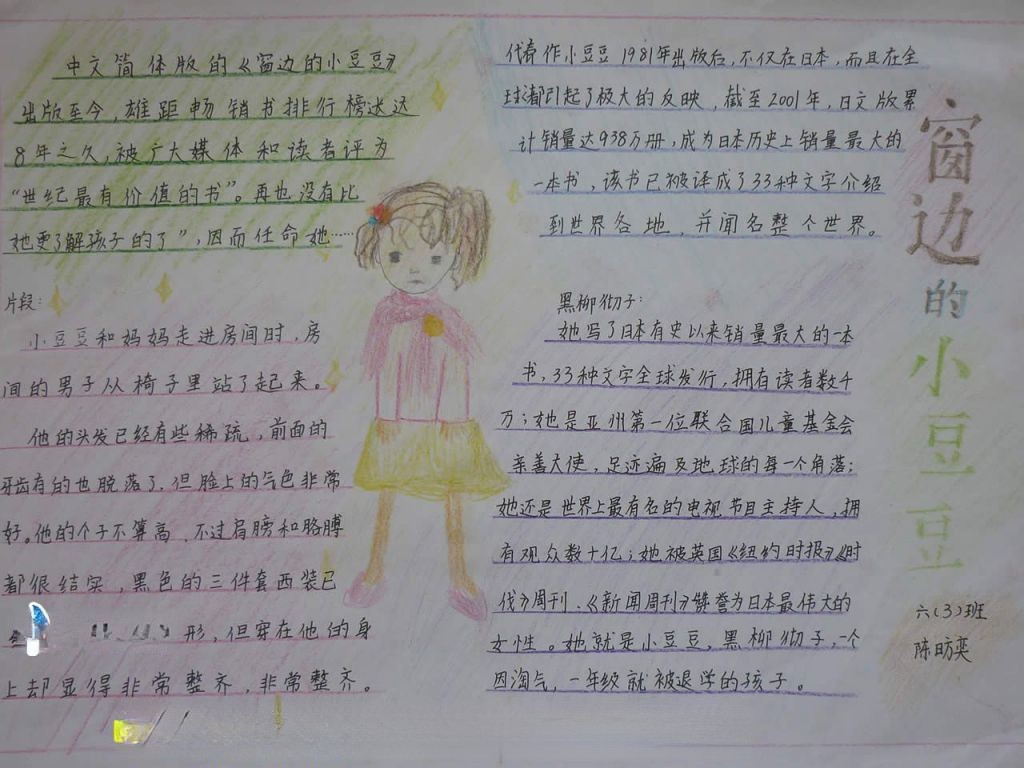 中文简体版的《窗边的小豆豆》
出版至今，雄距畅销书排行榜达达
8年之久，被广大媒体和读者评为
“世纪最有价值的书”。再也没有比
她更了解孩子的了”，因而任命她……
片段：
小豆豆和妈妈走进房间时，房
间的男子从椅子里站了起来。
他的头发已经有些稀疏，前面的
牙齿有的也脱落了，但脸上的气色非常
好。他的个子不算高，不过肩膀和胳膊
都很结实，黑色的三件套西装已
形，但穿在他的身
上却显得非常整齐，非常整齐。
代表作小豆豆1981年出版后，不仅在日本，而且在全
球都引起了极大的反映，截至2001年，日文版累
计销量达938万册，成为日本历史上销量最大的
一本书，该书已被译成了33种文字介绍
到世界各地，并闻名整个世界。
黑柳彻子：
她写了日本有史以来销量最大的一本
书，33种文字全球发行，拥有读者数千
万；她是亚州第一位联合国儿童基金会
亲善大使，足迹遍及地球的每一个角落；
她还是世界上最有名的电视节目主持人，拥
有观众数十亿；她被英国《纽约时报》《时
代》周刊、《新闻周刊》赞誉为日本最伟大的
女性。她就是小豆豆，黑柳彻子，一个
因淘气，一年级就被退学的孩子。
窗边的小豆豆
六（3）班
陈昉奕